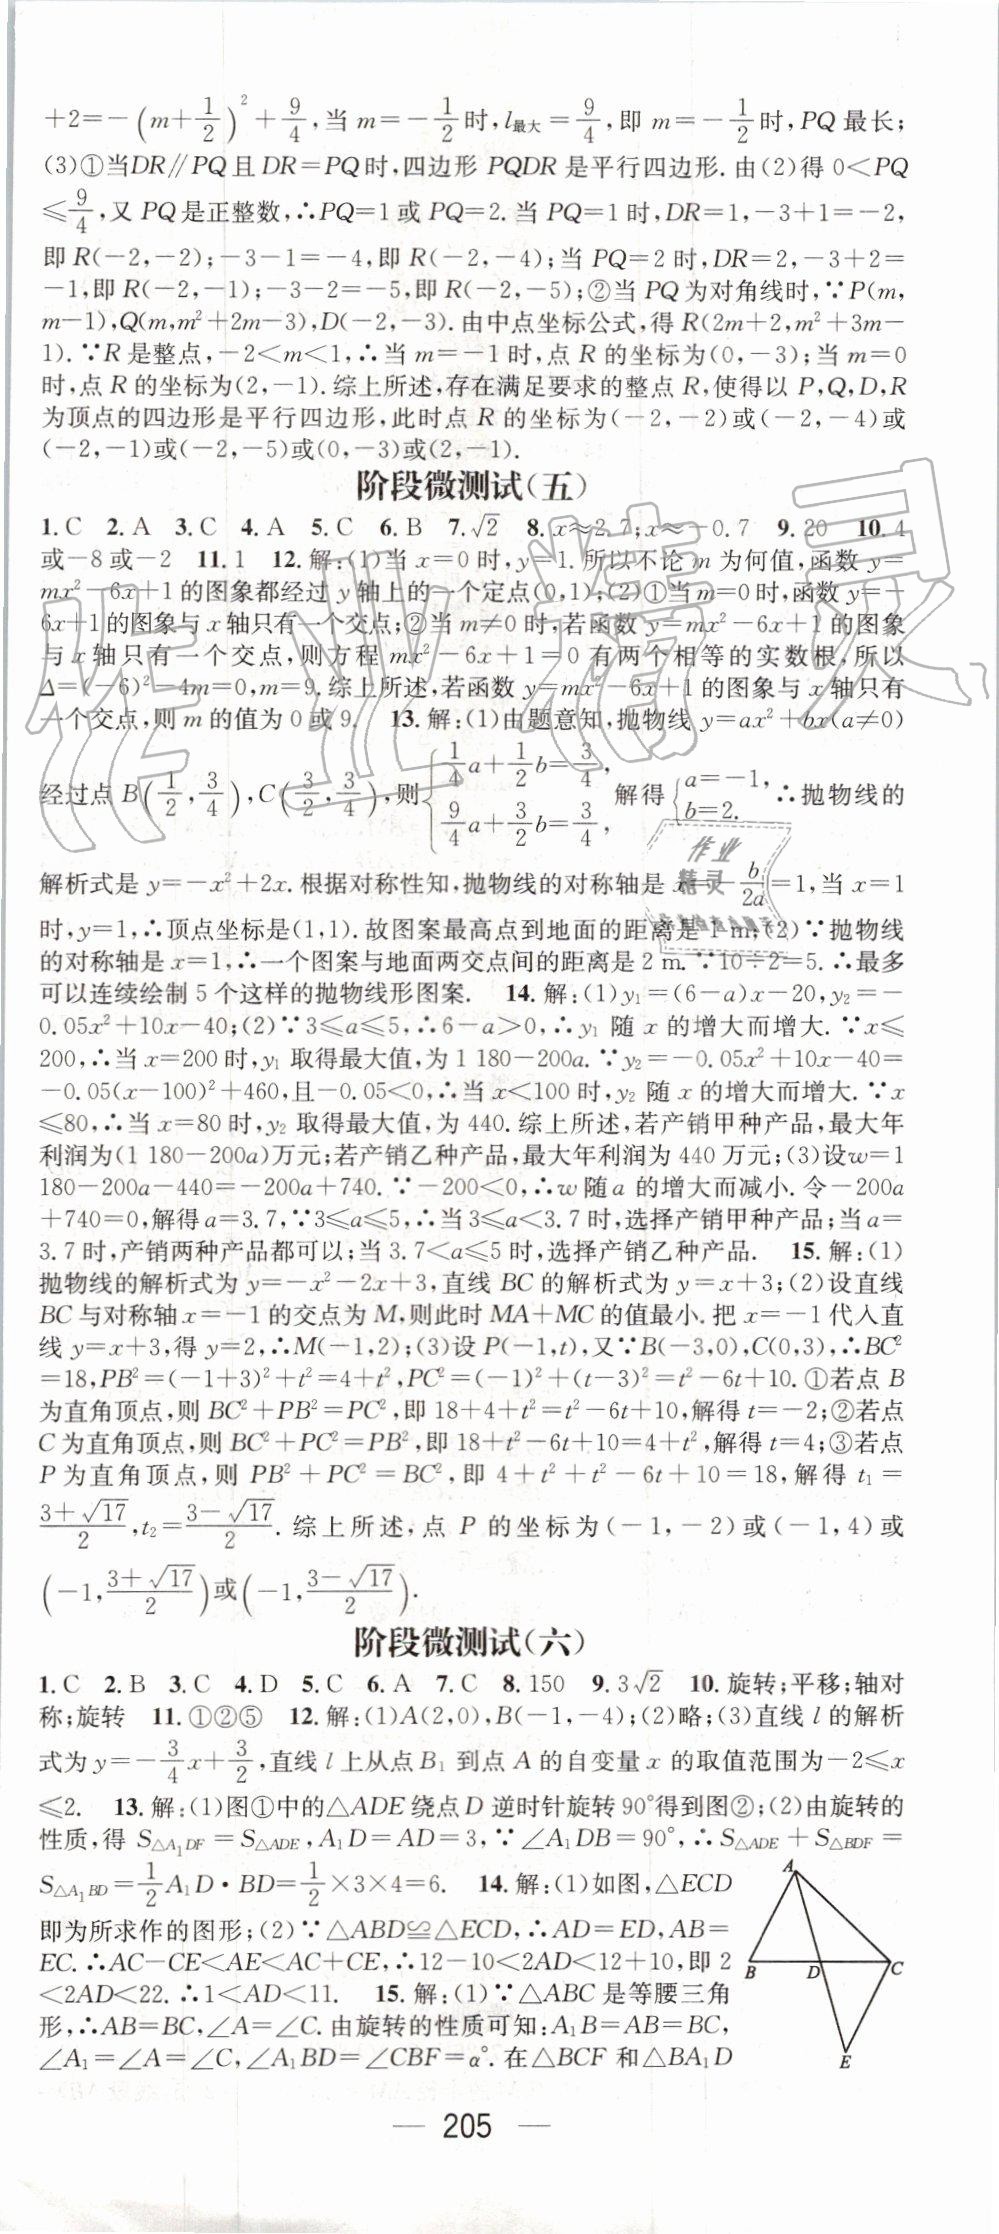 +2=-(m+1/2)²+9/4,当 m=-1/2时,l最大=9/4,即 m=-1/2时,PQ 最长;
(3)①当DR∥PQ且DR=PQ时,四边形 PQDR 是平行四边形.由(2)得 0<PQ
≤9/4,又 PQ是正整数,∴PQ=1或 PQ=2.当 PQ=1时,DR=1,-3+1=-2,
即 R(-2,-2);-3-1=-4,即 R(-2,-4);当 PQ=2时,DR=2,-3+2=
-1,即 R(-2,-1);-3-2=-5,即 R(-2,-5);②当 PQ为对角线时,∵P(m,
m-1),Q(m,m²+2m-3),D(-2,-3).由中点坐标公式,得 R(2m+2,m²+3m-
1).∵R 是整点,-2<m<1,∴当 m=-1时,点 R 的坐标为(0,-3);当 m=0
时,点 R 的坐标为(2,-1).综上所述,存在满足要求的整点 R,使得以 P,Q,D,R
为顶点的四边形是平行四边形,此时点 R 的坐标为(-2,-2)或(-2,-4)或
(-2,-1)或(-2,-5)或(0,-3)或(2,-1).
阶段微测试(五)
1.C 2.A 3.C 4.A 5.C 6.B 7.√2 8.x≈2.7;x≈-0.7 9.20 10.4
或-8或-2 11.1 12.解:(1)当 x=0时,y=1.所以不论 m 为何值,函数 y=
mx²-6x+1的图象都经过 y 轴上的一个定点(0,1);(2)①当m=0时,函数 y=-
6x+1的图象与 x 轴只有一个交点;②当m≠0时,若函数 y=mx²-6x+1的图象
与 x 轴只有一个交点,则方程 mx²-6x+1=0 有两个相等的实数根,所以
Δ=(-6)²-4m=0,m=9.综上所述,若函数 y=mx²-6x+1的图象与 x 轴只有
一个交点,则 m 的值为 0 或 9. 13.解:(1)由题意知,抛物线 y=ax²+bx(a≠0)
经过点 B(1/2,3/4),C(3/2,3/4),则{1/4a+1/2b=3/4, 9/4a+3/2b=3/4, 解得{a=-1, b=2. ∴抛物线的
解析式是 y=-x²+2x.根据对称性知,抛物线的对称轴是 x=-b/2a=1,当 x=1
时,y=1,∴顶点坐标是(1,1).故图案最高点到地面的距离是 1 m;(2)∵抛物线
的对称轴是 x=1,∴一个图案与地面两交点间的距离是 2 m.∵10÷2=5.∴最多
可以连续绘制 5 个这样的抛物线形图案. 14.解:(1)y₁=(6-a)x-20,y₂=-
0.05x²+10x-40;(2)∵3≤a≤5,∴6-a>0,∴y₁ 随 x 的增大而增大.∵x≤
200,∴当 x=200时,y₁ 取得最大值,为 1 180-200a.∵y₂=-0.05x²+10x-40=
-0.05(x-100)²+460,且-0.05<0,∴当 x<100时,y₂ 随 x 的增大而增大.∵x
≤80,∴当 x=80时,y₂ 取得最大值,为 440.综上所述,若产销甲种产品,最大年
利润为(1 180-200a)万元;若产销乙种产品,最大年利润为 440 万元;(3)设w=1
180-200a-440=-200a+740.∵-200<0,∴w 随a 的增大而减小.令-200a
+740=0,解得a=3.7,∵3≤a≤5,∴当3≤a<3.7时,选择产销甲种产品;当 a=
3.7时,产销两种产品都可以;当 3.7<a≤5时,选择产销乙种产品. 15.解:(1)
抛物线的解析式为 y=-x²-2x+3,直线 BC 的解析式为 y=x+3;(2)设直线
BC 与对称轴x=-1的交点为 M,则此时 MA+MC 的值最小.把 x=-1代入直
线 y=x+3,得 y=2,∴M(-1,2);(3)设 P(-1,t),又∵B(-3,0),C(0,3),∴BC²
=18,PB²=(-1+3)²+t²=4+t²,PC²=(-1)²+(t-3)²=t²-6t+10.①若点 B
为直角顶点,则 BC²+PB²=PC²,即 18+4+t²=t²-6t+10,解得 t=-2;②若点
C 为直角顶点,则 BC²+PC²=PB²,即 18+t²-6t+10=4+t²,解得 t=4;③若点
P 为直角顶点,则 PB²+PC²=BC²,即 4+t²+t²-6t+10=18,解得 t₁=
(3+√17)/2,t₂=(3-√17)/2.综上所述,点 P 的坐标为(-1,-2)或(-1,4)或
(-1,(3+√17)/2)或(-1,(3-√17)/2).
阶段微测试(六)
1.C 2.B 3.C 4.D 5.C 6.A 7.C 8.150 9.3√2 10.旋转;平移;轴对
称;旋转 11.①②⑤ 12.解:(1)A(2,0),B(-1,-4);(2)略;(3)直线 l 的解析
式为 y=-3/4x+3/2,直线 l 上从点 B₁ 到点 A 的自变量 x 的取值范围为-2≤x
≤2. 13.解:(1)图①中的△ADE 绕点 D 逆时针旋转 90°得到图②;(2)由旋转的
性质,得 S△A₁DF=S△ADE,A₁D=AD=3,∵∠A₁DB=90°,∴S△ADE+S△BDF=
S△A₁BD=1/2A₁D·BD=1/2×3×4=6. 14.解:(1)如图,△ECD
即为所求作的图形;(2)∵△ABD≌△ECD,∴AD=ED,AB=
EC.∴AC-CE<AE<AC+CE,∴12-10<2AD<12+10,即 2
<2AD<22.∴1<AD<11. 15.解:(1)∵△ABC 是等腰三角
形,∴AB=BC,∠A=∠C.由旋转的性质可知:A₁B=AB=BC,
∠A₁=∠A=∠C,∠A₁BD=∠CBF=α°.在△BCF 和△BA₁D
A
B D C
E
— 205 —
作业精灵
作业
精灵